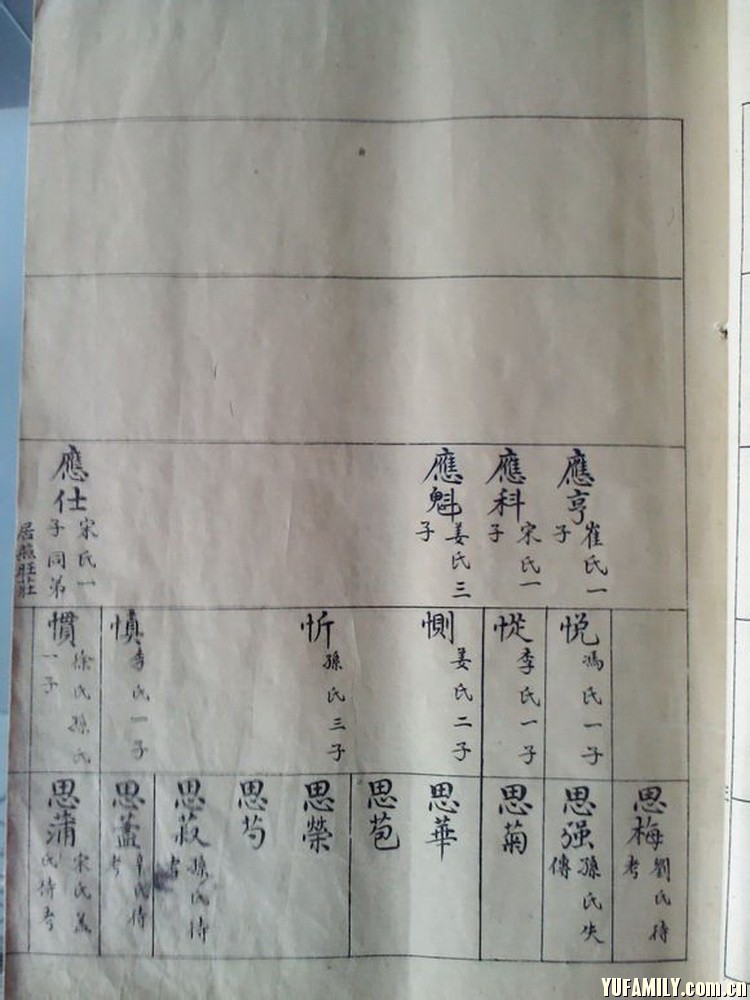 應亨
崔氏一
子
應科
宋氏一
子
應魁
姜氏三
子
應仕
宋氏一
子同弟
居燕旺莊
悦
馮氏一子
㤖
李氏一子
惻
姜氏二子
忻
孫氏三子
慎
李氏一子
慣
徐氏孫氏
一子
思梅
劉氏待
考
思强
孫氏失
傳
思菊
思華
思苞
思榮
思芍
思菽
孫氏待
考
思蓋
氏待
考
思蒲
宋氏蓋
氏待考
YUFAMILY.com.cn